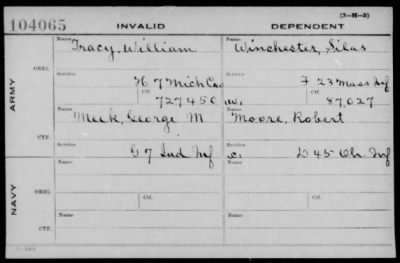 (3-H-5)
104065 INVALID DEPENDENT
Name Tracy, William Name Winchester, Silas
ORIG.
Service Service
H 7 Mich Cav F 23 Mass Inf
ARMY
Ctf. 727450 Ctf. W, 87,027
Name Meek, George M Name Moore, Robert
CTF.
Service Service
G 7 Ind Inf C. D 45 Oh. Inf
Name Name
ORIG.
Ctf. Ctf.
NAVY
Name Name
CTF.